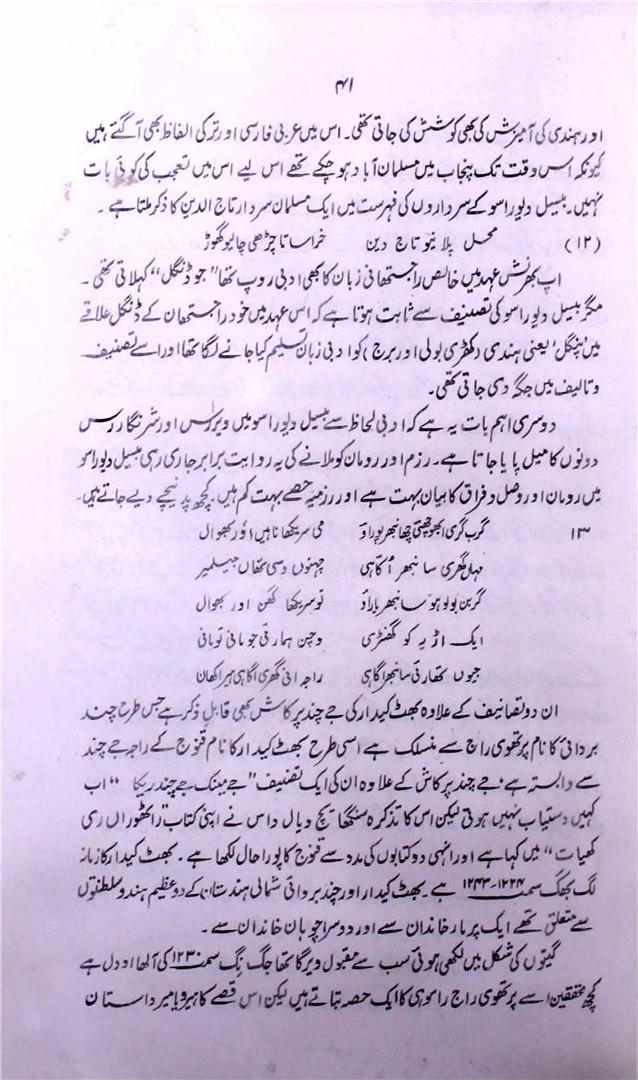 ۴۱
اور ہندی کی آمیزش کی بھی کوشش کی جاتی تھی۔ اس میں عربی فارسی اور ترکی الفاظ بھی آگئے ہیں
کیونکہ اس وقت تک پنجاب میں مسلمان آباد ہو چکے تھے اس لیے اس میں تعجب کی کوئی بات
نہیں۔ بیسل دیوراسو کے سرداروں کی فہرست میں ایک مسلمان سردار تاج الدین کا ذکر ملتا ہے۔
(۱۲) محل پلانیو تاج دین خراسانا چڑھی چالیو گھوڑ
اپ بھرنش عہد میں خالص راجستھانی زبان کا بھی ادبی روپ تھا ”جو ڈنگل“ کہلاتی تھی۔
مگر بیسل دیوراسو کی تصنیف سے ثابت ہوتا ہے کہ اس عہد میں خود راجستھان کے ڈنگل علاقے
میں ’پنگل‘ یعنی ہندی (کھڑی بولی اور برج) کو ادبی زبان تسلیم کیا جانے لگا تھا اور اسے تصنیف
و تالیف میں جگہ دی جاتی تھی۔
دوسری اہم بات یہ ہے کہ ادبی لحاظ سے بیسل دیوراسو میں ویررس اور شرنگار رس
دونوں کا میل پایا جاتا ہے۔ رزم اور رومان کو ملانے کی یہ روایت برابر جاری رہی بیسل دیوراسو
میں رومان اور وصل و فراق کا بیان بہت ہے اور رزمیہ حصے بہت کم ہیں۔ کچھ پد نیچے دیے جاتے ہیں۔
۱۳ گرب گری سانبھر پوراؤ می سریکھا ناہیں اور بھوال
گھری سانبھر اُگاہی جہنوں وسی تھاں جیسلمیر
گربن بولو ہو سانبھر یاراؤ تو سریکھا گھن اور بھوال
ایک اڑیہ کو گھنڑی وچن ہماری جو مانی نومانی
جیوں تھاری سانبھر اگاہی راجہ انی گھری اگاہی ہیرا کھان
ان دو تصانیف کے علاوہ بھٹ کیدار کی جے چند پرکاش بھی قابل ذکر ہے جس طرح چند
بردائی کا نام پرتھوی راج سے منسلک ہے اسی طرح بھٹ کیدار کا نام قنوج کے راجہ جے چند
سے وابستہ ہے؛ جے چند پرکاش کے علاوہ ان کی ایک تصنیف ”جے مینک جے چندریکا“ اب
کہیں دستیاب نہیں ہوتی لیکن اس کا تذکرہ سنگھا دیال داس نے اپنی کتاب ”راٹھوراں ری
کھیات“ میں کہا ہے اور انہی دو کتابوں کی مدد سے قنوج کا پورا حال لکھا ہے۔ بھٹ کیدار کا زمانہ
لگ بھگ سمت ۱۲۲۴-۱۲۴۳ ہے۔ بھٹ کیدار اور چند بردائی شمالی ہندستان کے دو عظیم ہندو سلطنتوں
سے متعلق تھے ایک پرہار خاندان سے اور دوسرا چوہان خاندان سے۔
گیتوں کی شکل میں لکھی ہوئی سب سے مقبول ویر گاتھا جگ نِگ سمت ۱۲۳۰ کی آلھا اودل ہے
کچھ محققین اسے پرتھوی راج راسو ہی کا ایک حصہ بتاتے ہیں لیکن اس قصے کا ہیرو یا میر داستان